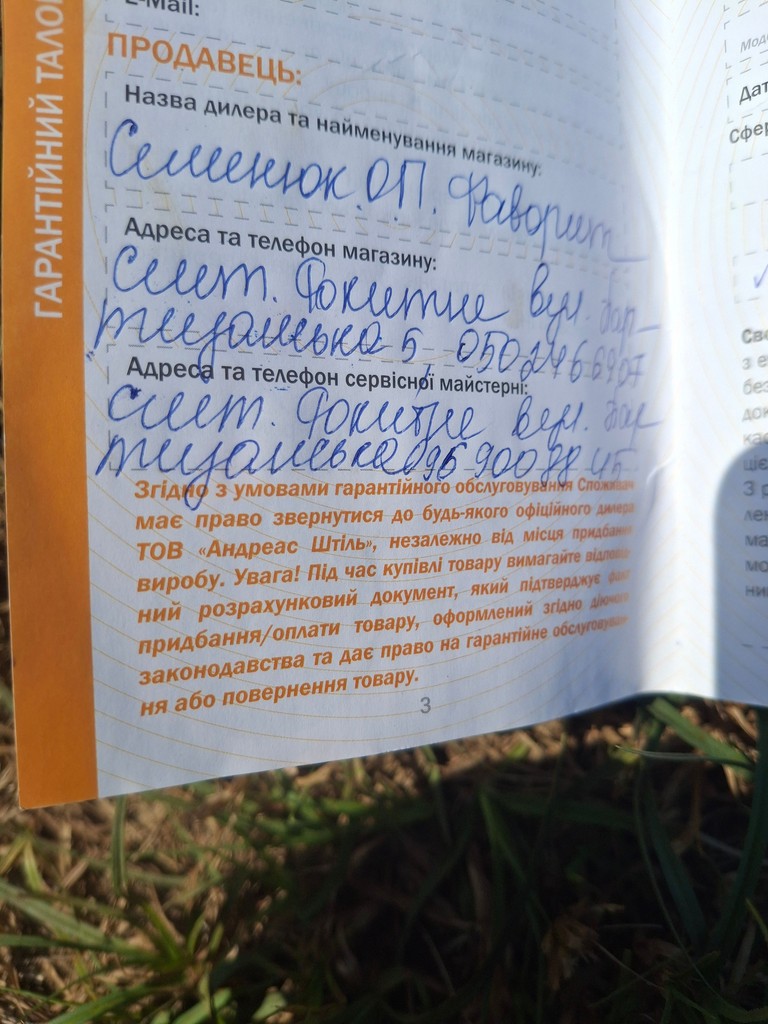 E-Mail:
ГАРАНТІЙНИЙ ТАЛОН
ПРОДАВЕЦЬ:
Назва дилера та найменування магазину:
Семенюк.О.П. Фаворит
Адреса та телефон магазину:
смт. Рокитне вул. Пар-
тизанська 5, 050
Адреса та телефон сервісної майстерні:
смт. Рокитне вул. Пар
тизанська 096 900
Згідно з умовами гарантійного обслуговування Споживач
має право звернутися до будь-якого офіційного дилера
ТОВ «Андреас Штіль», незалежно від місця придбання
виробу. Увага! Під час купівлі товару вимагайте відповід-
ний розрахунковий документ, який підтверджує факт
придбання/оплати товару, оформлений згідно діючого
законодавства та дає право на гарантійне обслуговуван-
ня або повернення товару.
3